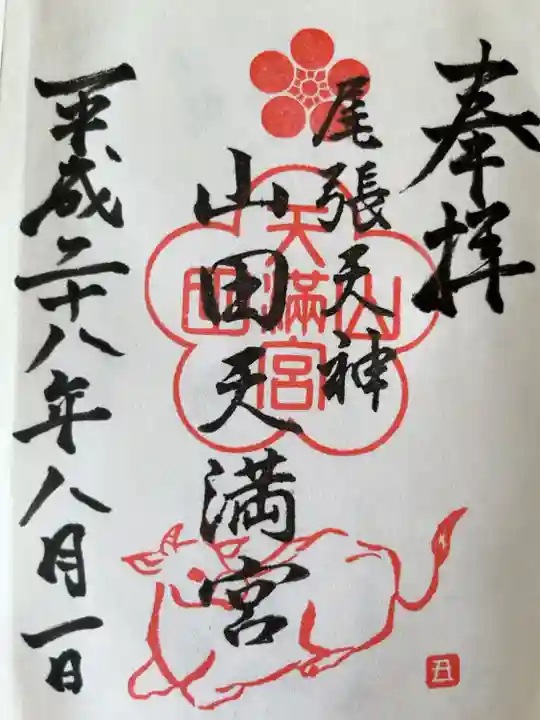 奉拝
尾張天神
山田天満宮
山田天満宮
平成二十八年八月一日